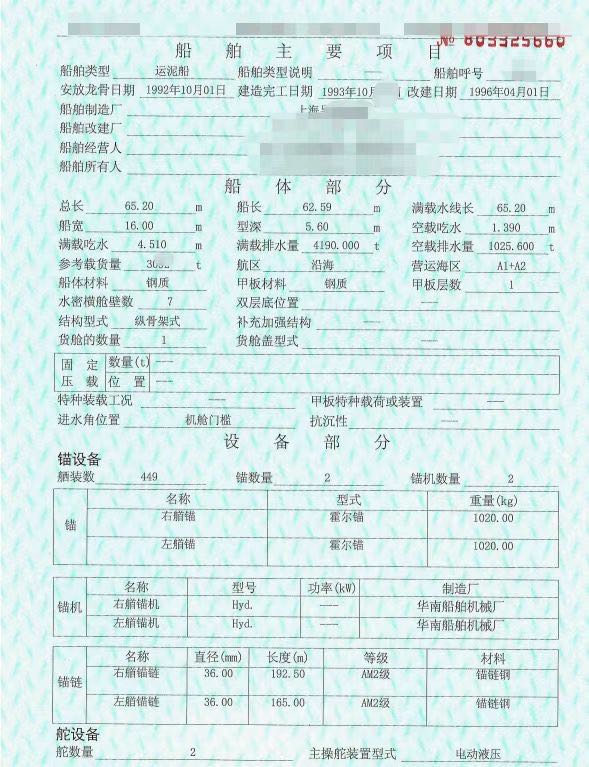 № 803325660
船 舶 主 要 项 目
船舶类型 运泥船 船舶类型说明 —— 船舶呼号
安放龙骨日期 1992年10月01日 建造完工日期 1993年10月 日 改建日期 1996年04月01日
船舶制造厂 上海
船舶改建厂
船舶经营人
船舶所有人
船 体 部 分
总长 65.20 m 船长 62.59 m 满载水线长 65.20 m
船宽 16.00 m 型深 5.60 m 空载吃水 1.390 m
满载吃水 4.510 m 满载排水量 4190.000 t 空载排水量 1025.600 t
参考载货量 t 航区 沿海 营运海区 A1+A2
船体材料 钢质 甲板材料 钢质 甲板层数 1
水密横舱壁数 7 双层底位置 ———
结构型式 纵骨架式 补充加强结构 ———
货舱的数量 1 货舱盖型式 ———
固 定 数量(t) ———
压 载 位 置 ———
特种装载工况 ——— 甲板特种载荷或装置 ———
进水角位置 机舱门槛 抗沉性 ———
设 备 部 分
锚设备
舾装数 449 锚数量 2 锚机数量 2
名称 型式 重量(kg)
锚 右艏锚 霍尔锚 1020.00
左艏锚 霍尔锚 1020.00
名称 型号 功率(kW) 制造厂
锚机 右艏锚机 Hyd. ——— 华南船舶机械厂
左艏锚机 Hyd. ——— 华南船舶机械厂
名称 直径(mm) 长度(m) 等级 材料
锚链 右艏锚链 36.00 192.50 AM2级 锚链钢
左艏锚链 36.00 165.00 AM2级 锚链钢
舵设备
舵数量 2 主操舵装置型式 电动液压